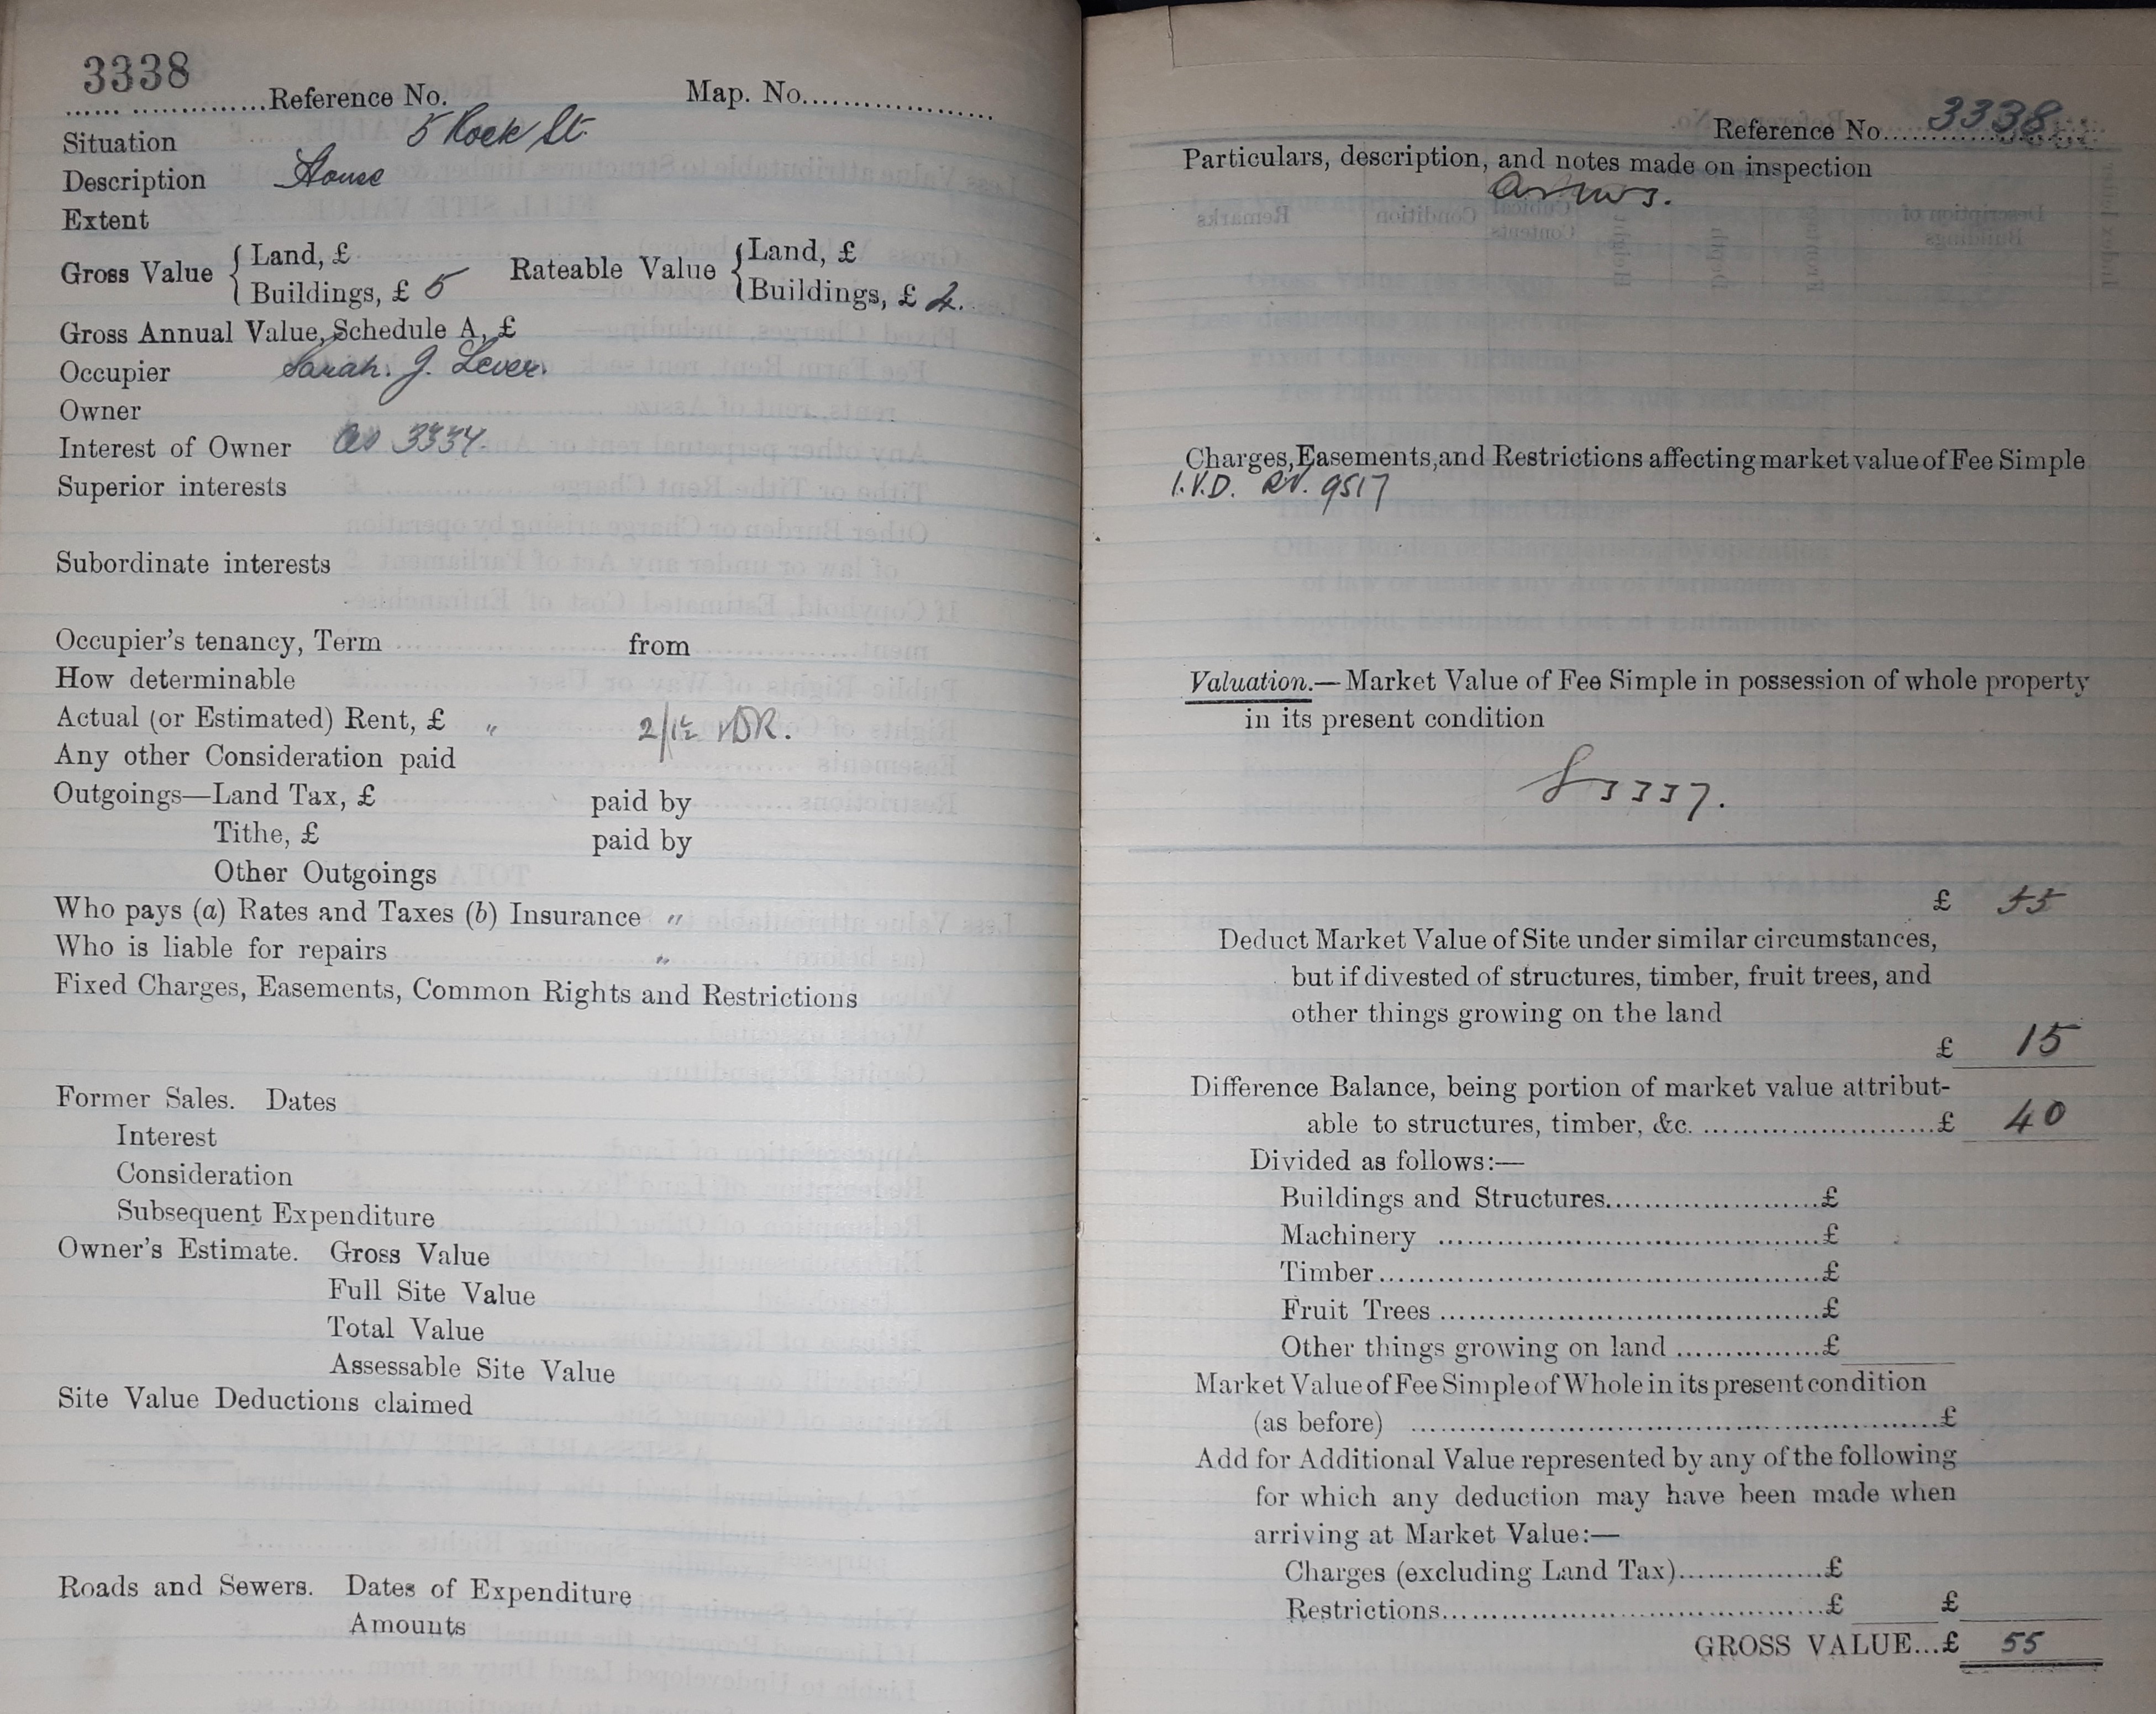 3338
Reference No. Map. No.
Situation 5 Rock St.
Description House
Extent
Gross Value { Land, £ Rateable Value { Land, £
Buildings, £ 5 Buildings, £ 4.
Gross Annual Value, Schedule A, £
Occupier Sarah. J. Lever.
Owner
Interest of Owner as 3334.
Superior interests
Subordinate interests
Occupier's tenancy, Term from
How determinable
Actual (or Estimated) Rent, £ "
Any other Consideration paid
Outgoings—Land Tax, £ paid by
Tithe, £ paid by
Other Outgoings
Who pays (a) Rates and Taxes (b) Insurance "
Who is liable for repairs "
Fixed Charges, Easements, Common Rights and Restrictions
Former Sales. Dates
Interest
Consideration
Subsequent Expenditure
Owner's Estimate. Gross Value
Full Site Value
Total Value
Assessable Site Value
Site Value Deductions claimed
Roads and Sewers. Dates of Expenditure
Amounts
Reference No. 3338
Particulars, description, and notes made on inspection
Charges, Easements, and Restrictions affecting market value of Fee Simple
I.V.D. RV. 9517
Valuation.—Market Value of Fee Simple in possession of whole property
in its present condition
3337.
£ 55
Deduct Market Value of Site under similar circumstances,
but if divested of structures, timber, fruit trees, and
other things growing on the land
£ 15
Difference Balance, being portion of market value attribut-
able to structures, timber, &c. £ 40
Divided as follows:—
Buildings and Structures £
Machinery £
Timber £
Fruit Trees £
Other things growing on land £
Market Value of Fee Simple of Whole in its present condition
(as before) £
Add for Additional Value represented by any of the following
for which any deduction may have been made when
arriving at Market Value:—
Charges (excluding Land Tax) £
Restrictions £ £
GROSS VALUE...£ 55